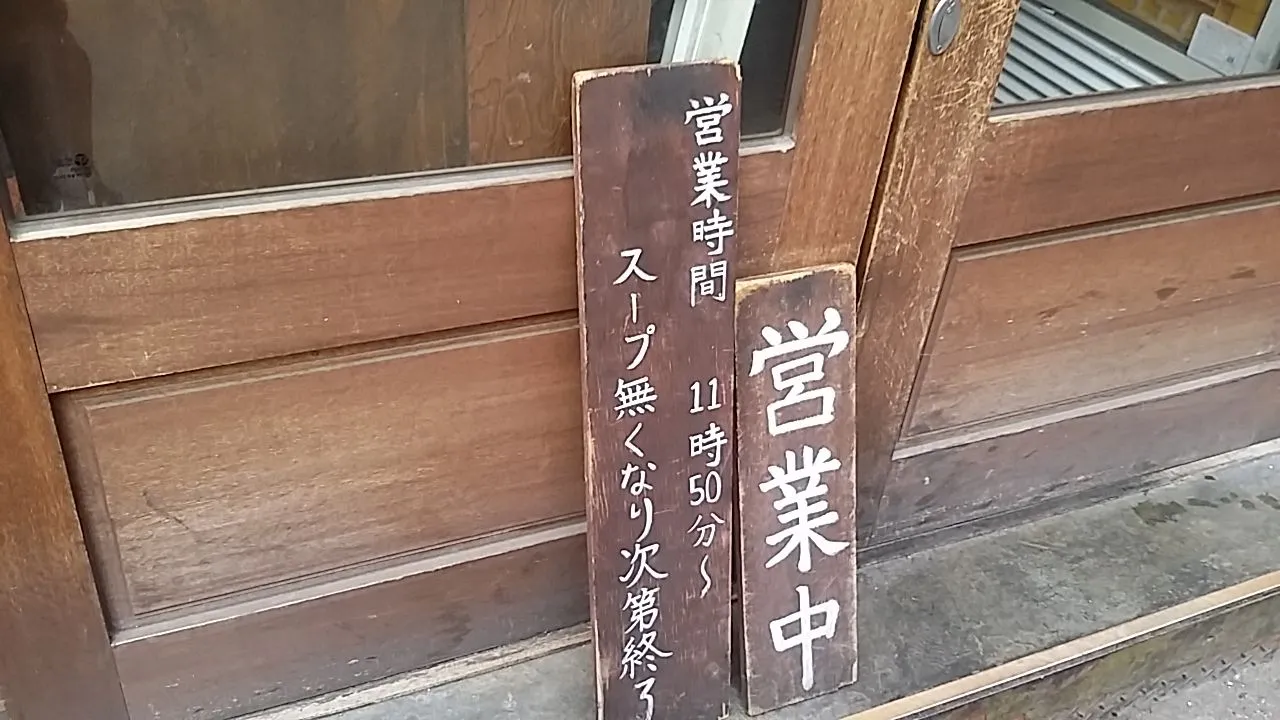 営業時間 11時50分〜
スープ無くなり次第終了
営業中